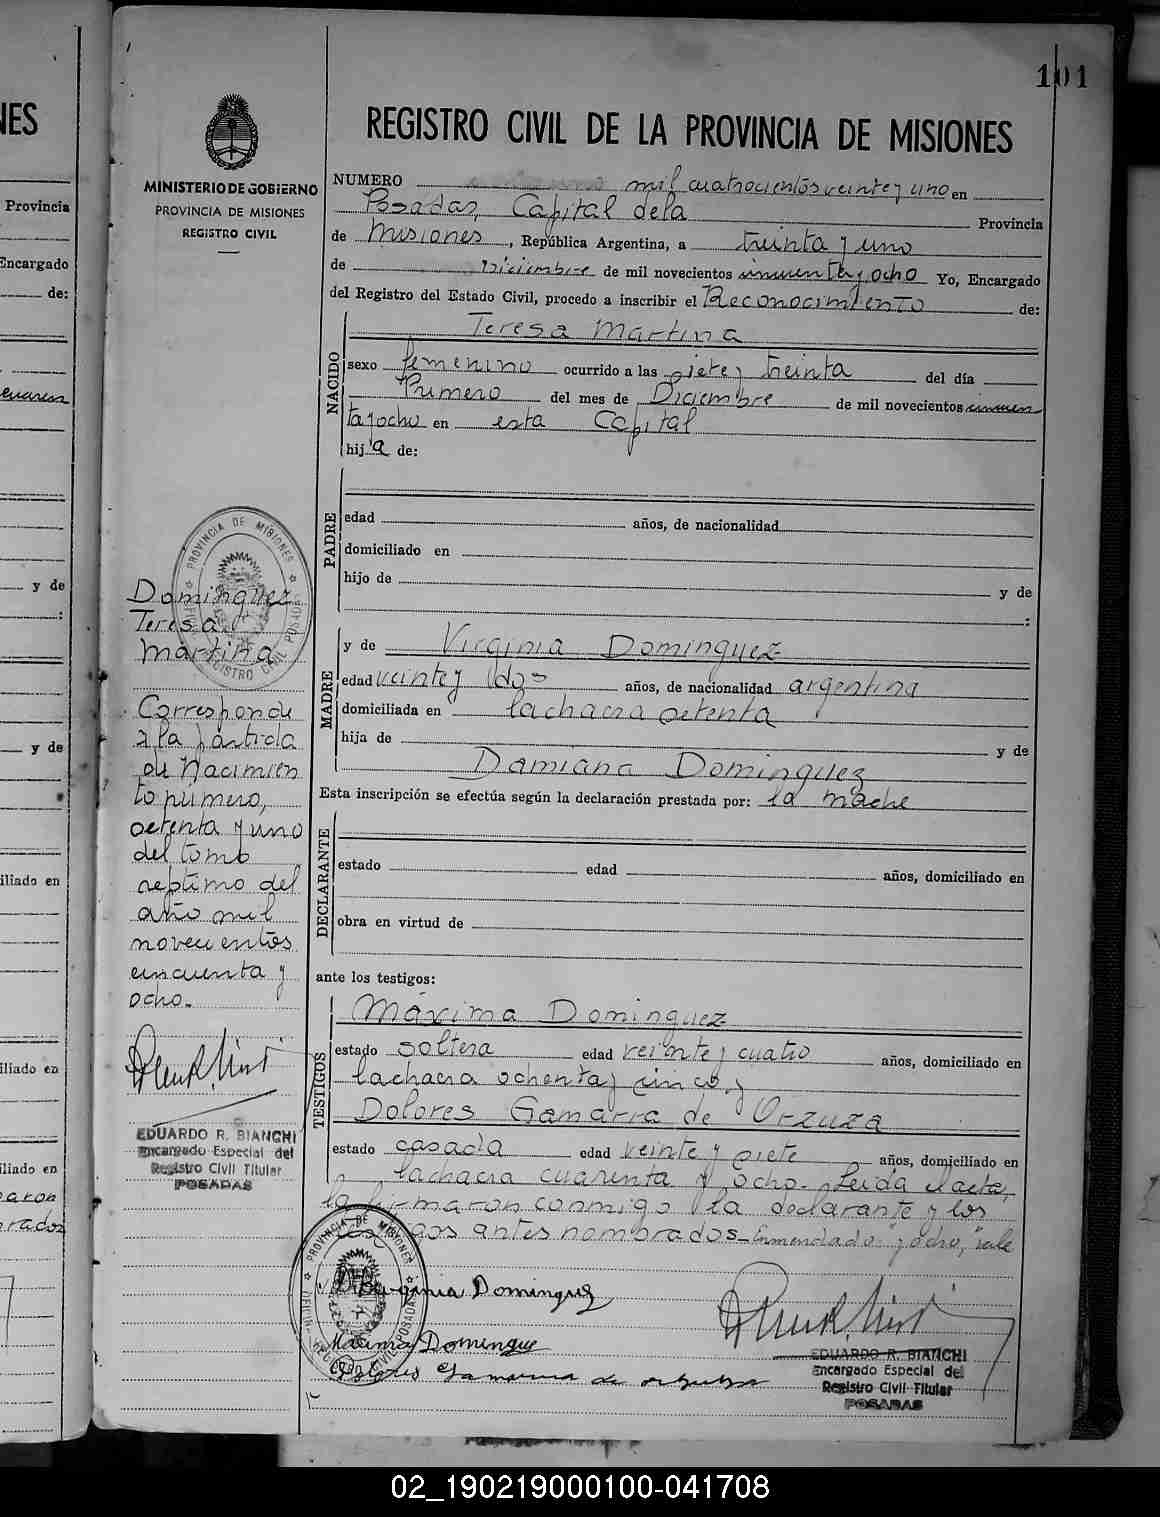 101
REGISTRO CIVIL DE LA PROVINCIA DE MISIONES
MINISTERIO DE GOBIERNO
PROVINCIA DE MISIONES
REGISTRO CIVIL
NUMERO mil cuatrocientos veinte y uno en
Posadas, Capital de la Provincia
de Misiones, República Argentina, a treinta y uno
de Diciembre de mil novecientos cincuenta y ocho Yo, Encargado
del Registro del Estado Civil, procedo a inscribir el Reconocimiento de:
NACIDO
Teresa Martina
sexo femenino ocurrido a las siete y treinta del día
Primero del mes de Diciembre de mil novecientos cincuen
ta y ocho en esta Capital
hija de:
PADRE
edad años, de nacionalidad
domiciliado en
hijo de y de
:
MADRE
y de Virginia Dominguez
edad veinte y dos años, de nacionalidad argentina
domiciliada en la chacra setenta
hija de y de
Damiana Dominguez
Esta inscripción se efectúa según la declaración prestada por: la madre
DECLARANTE
estado edad años, domiciliado en
obra en virtud de
ante los testigos:
TESTIGOS
Máxima Dominguez
estado soltera edad veinte y cuatro años, domiciliado en
la chacra ochenta y cinco y
Dolores Gamarra de Orzuza
estado casada edad veinte y siete años, domiciliado en
la chacra cuarenta y ocho. Leida el acta,
la firmaron conmigo la declarante y los
gos antes nombrados_ Enmendado: y ocho, "vale
Virginia Dominguez
Maxima Domingue
Dolores Gamarra de
EDUARDO R. BIANCHI
Encargado Especial del
Registro Civil Titular
POSADAS
Dominguez
Teresa
Martina
Corresponde
a la partida
de Nacimien
to primero,
setenta y uno
del tomo
septimo del
año mil
novecientos
cincuenta y
ocho._
EDUARDO R. BIANCHI
Encargado Especial del
Registro Civil Titular
POSADAS
PROVINCIA DE MISIONES
REGISTRO CIVIL POSADAS
PROVINCIA DE MISIONES
CIVIL POSADAS
NES
Provincia
Encargado
de:
y de
:
y de
iliado en
iliado en
iliado en
02_190219000100-041708